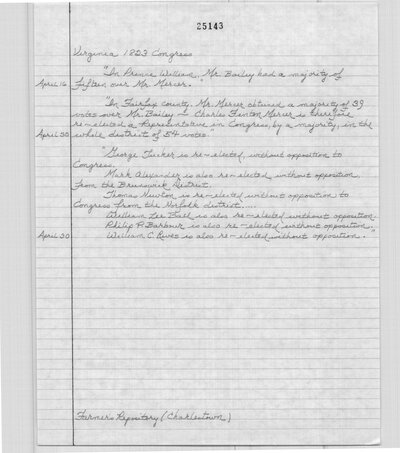 25143
Virginia 1823 Congress
"In Prince William, Mr. Bailey had a majority of
April 16 fifteen over Mr. Mercer.
"In Fairfax county, Mr. Mercer obtained a majority of 39
votes over Mr. Bailey – Charles Fenton Mercer is therefore
re-elected a Representative in Congress, by a majority, in the
April 30 whole district of 54 votes."
"George Tucker is re-elected, without opposition to
Congress.
Mark Alexander is also re-elected without opposition
from the Brunswick District.
Thomas Newton is re-elected without opposition to
Congress from the Norfolk district....
William Lee Ball is alos re-elected without opposition.
Philip P. Barbour is also re-elected without opposition.
April 30 William C. Rives is also re-elected without opposition."
Farmers Repository (Charlestown)